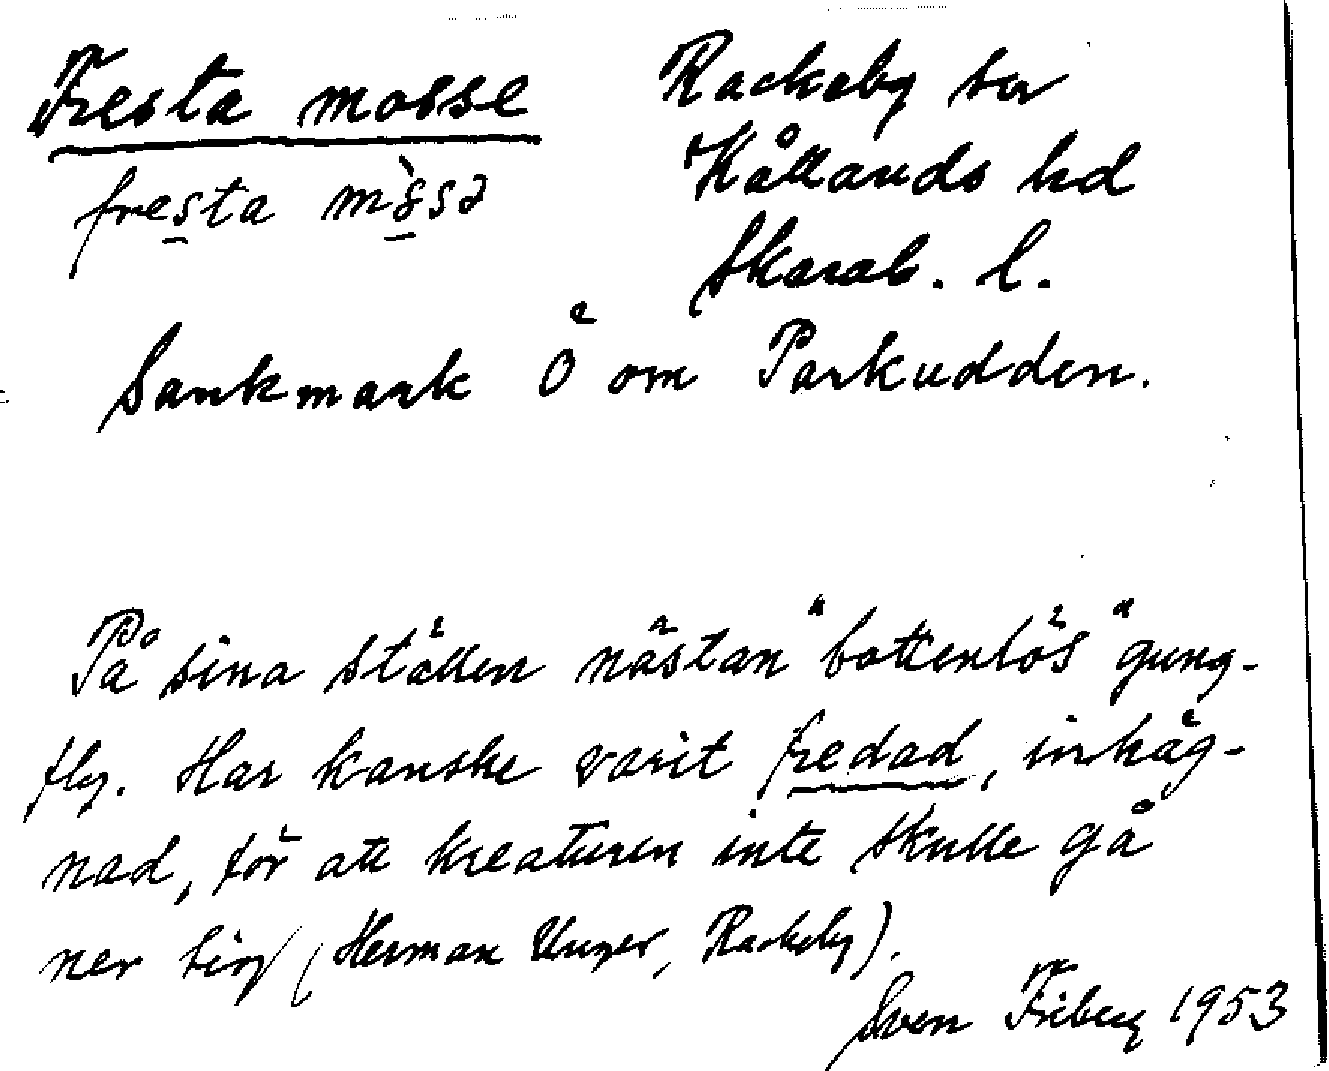 Fresta mosse
Rackeby sn
fresta
Kållands hd
Skarab. l.
Sankmark Ö om Parkudden.
På sina ställen nästan "bottenlös" gung-
fly. Har kanske varit fredad, inhäg-
nad, för att kreaturen inte skulle gå
ner sig (Herman Unger, Rackeby).
Sven Friberg 1953